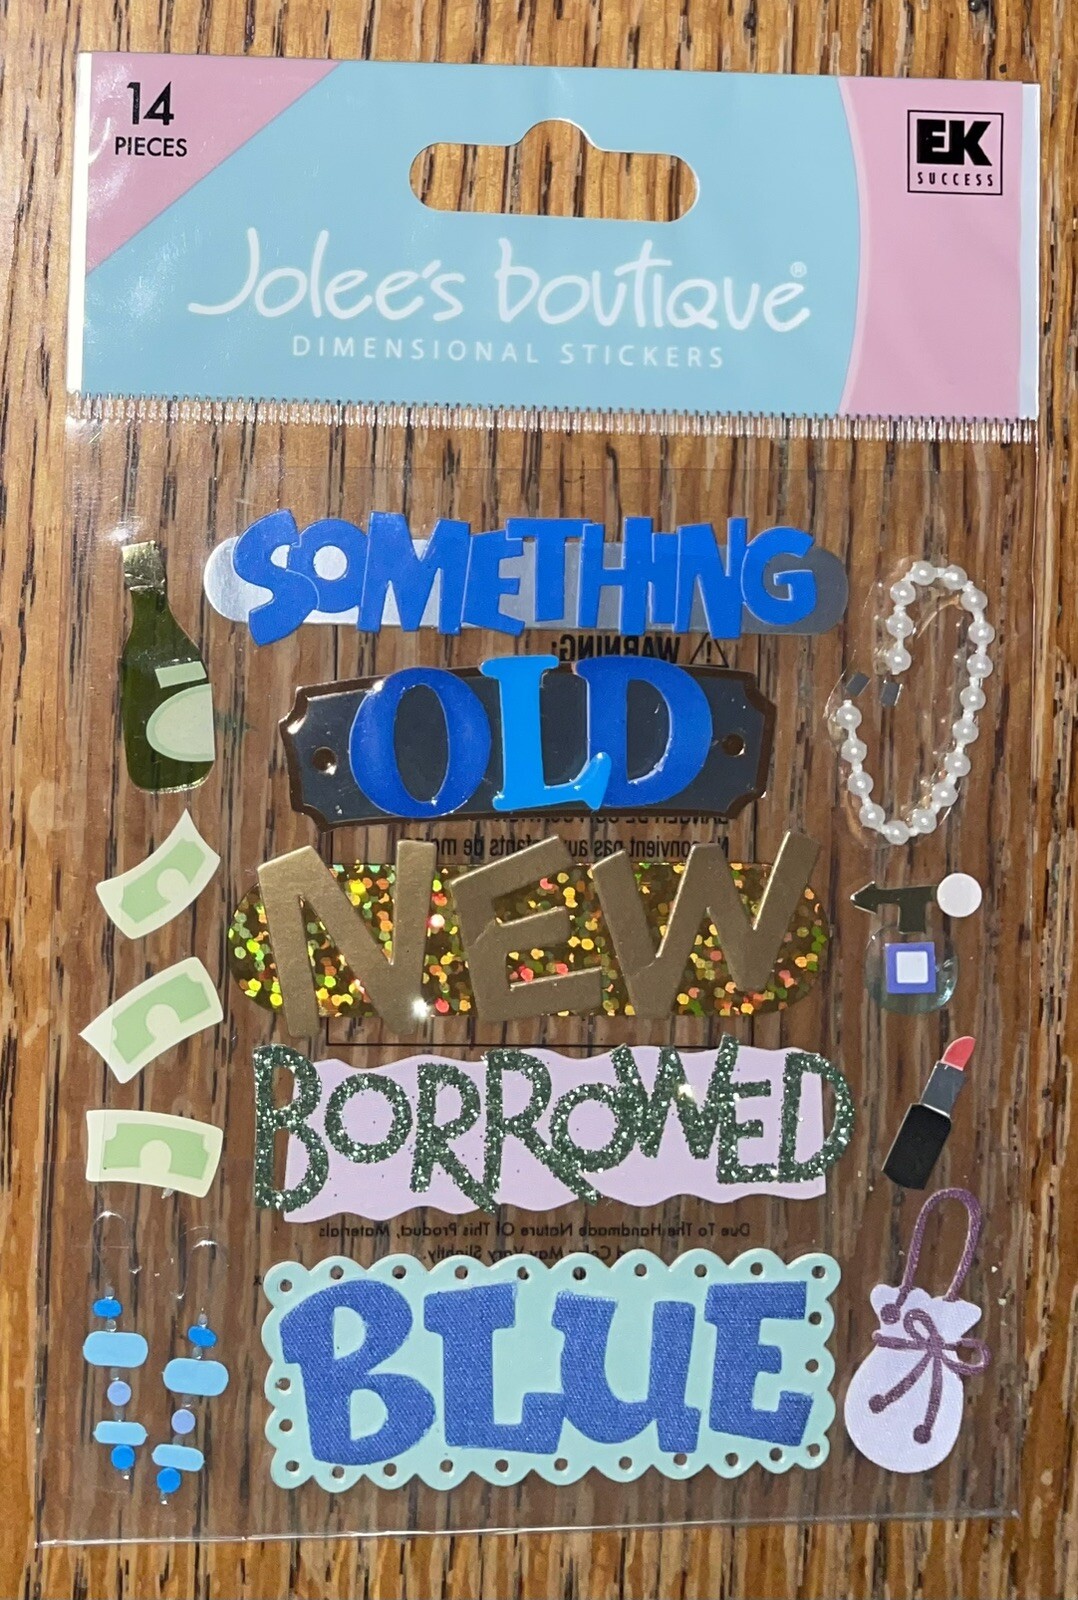 14
PIECES
EK
SUCCESS
Jolee's boutique®
DIMENSIONAL STICKERS
SOMETHING
WARNING:
OLD
Ne convient pas aux enfants de mo
NEW
BORROWED
Due To The Handmade Nature Of This Product, Materials
d Color May Vary Slightly.
BLUE